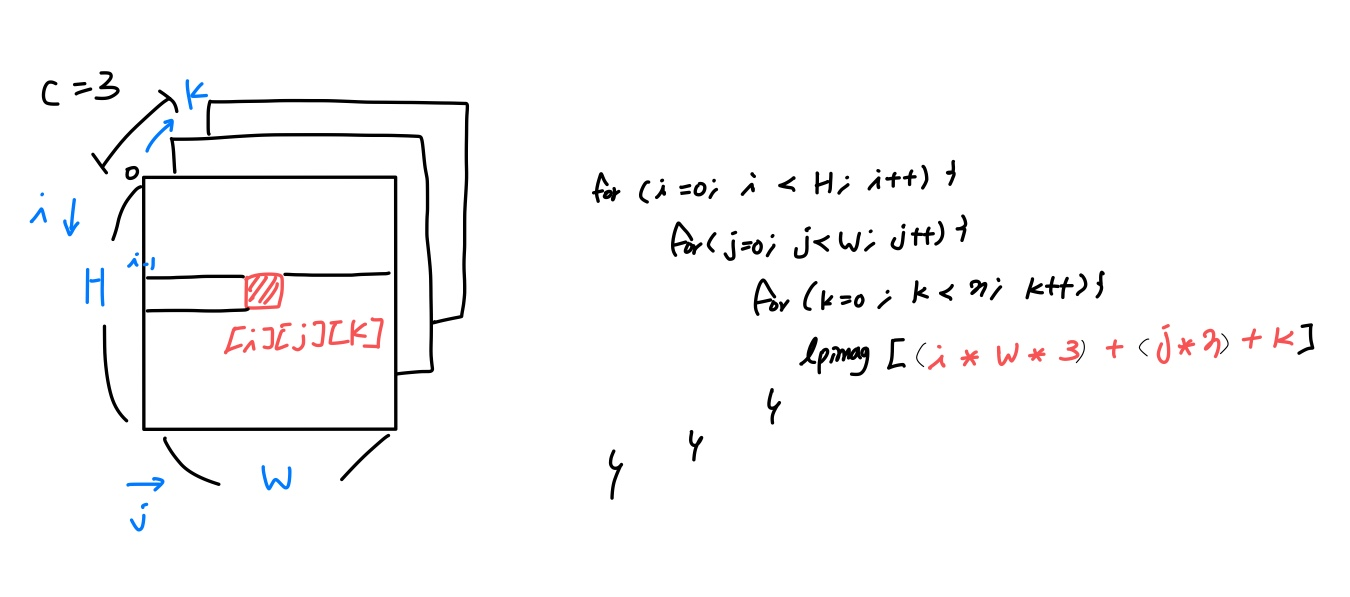 C = 3
k
0
i ↓
H
i-1
[i][j][k]
→
j
W
for (i=0; i < H; i++) {
for (j=0; j<W; j++) {
for (k=0; k < 3; k++) {
lpimag [(i * W * 3) + (j * 3) + k]
}
}
}